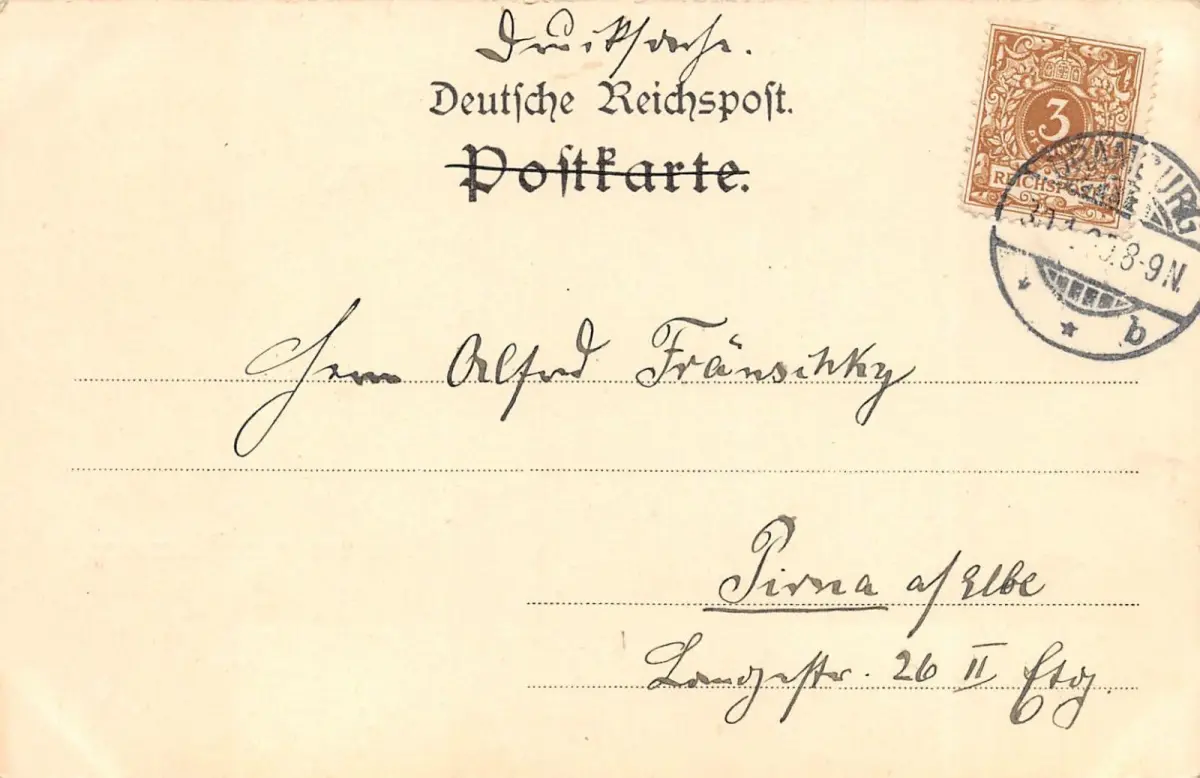 Drucksache.
Deutsche Reichspost.
Postkarte.
3
REICHSPOST
8-9N.
b
Herrn Alfred Fränschky
Pirna a/Elbe
Langestr. 26 II Etg.